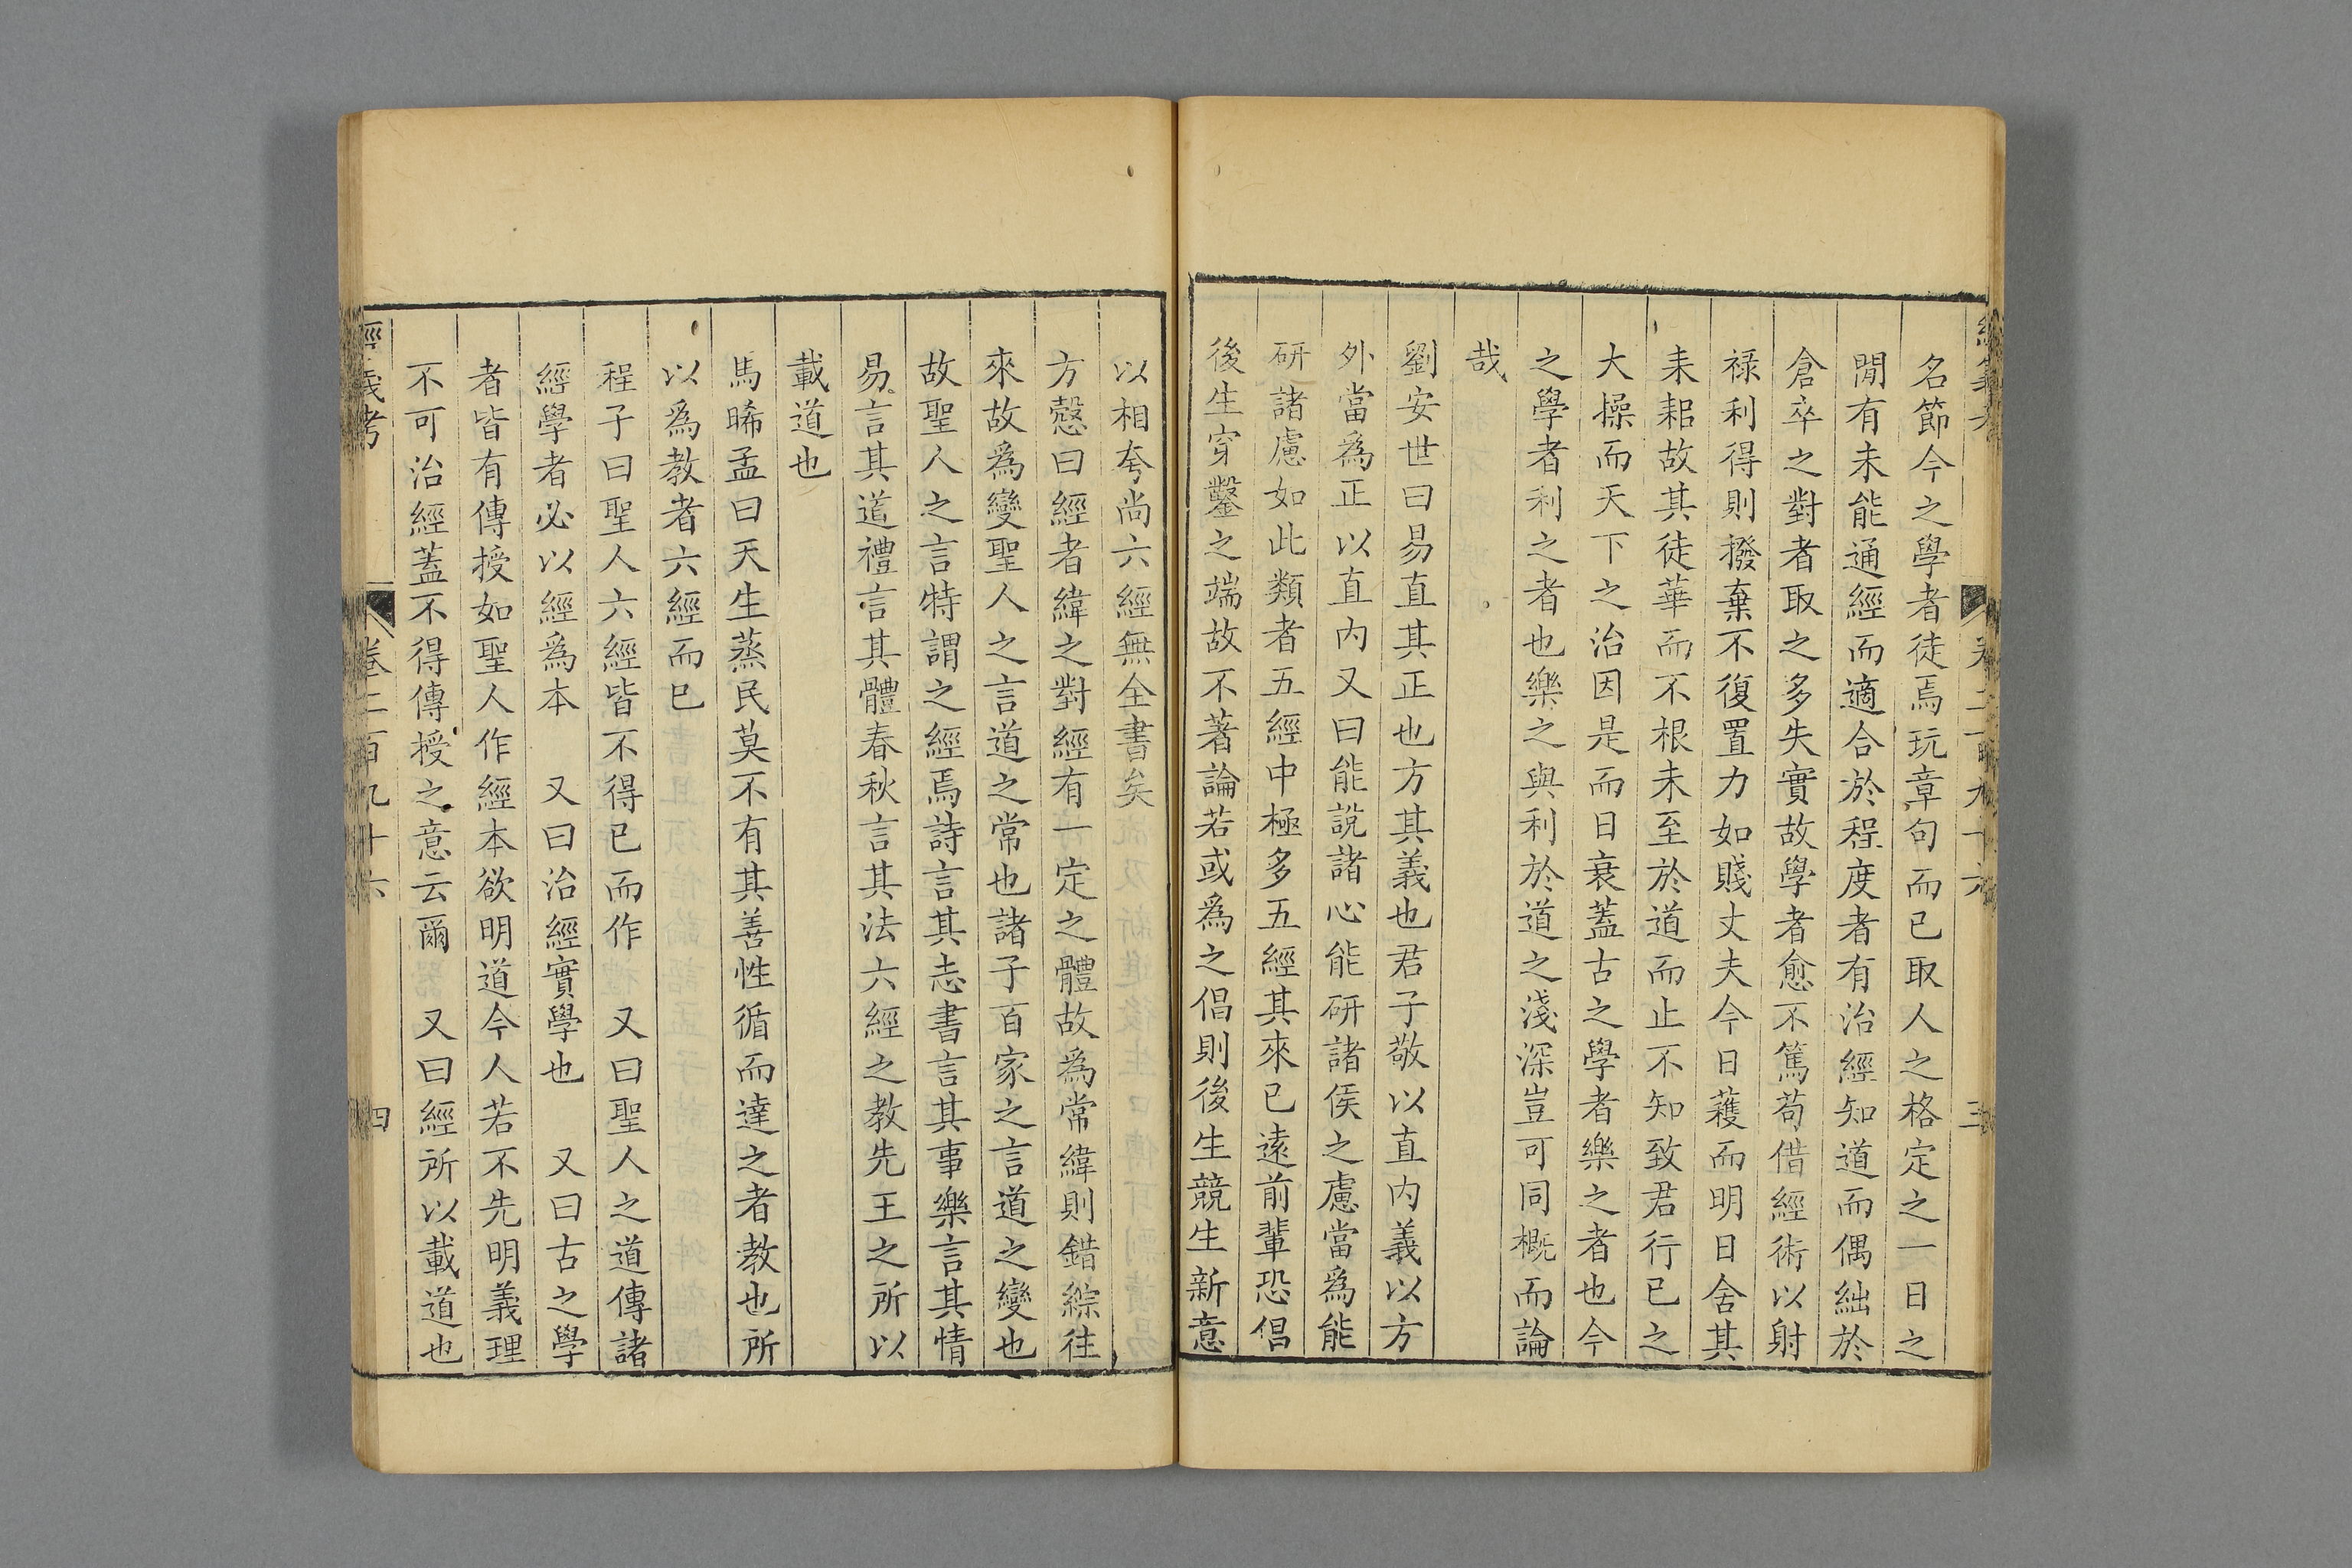 名節今之學者徒焉玩章句而已取人之格定之一日之
閒有未能通經而適合於程度者有治經知道而偶絀於
倉卒之對者取之多失實故學者愈不篤苟借經術以射
祿利得則撥棄不復置力如賤丈夫今日蓺而明日舍其
耒耜故其徒華而不根未至於道而止不知致君行已之
大操而天下之治因是而日衰蓋古之學者樂之者也今
之學者利之者也樂之與利於道之淺深豈可同概而論
哉
劉安世曰易直其正也方其義也君子敬以直內義以方
外當爲正以直內又曰能說諸心能研諸侯之慮當爲能
研諸慮如此類者五經中極多五經其來已遠前輩恐倡
後生穿鑿之端故不著論若或爲之倡則後生競生新意
以相夸尚六經無全書矣
方慤曰經者緯之對經有一定之體故爲常緯則錯綜往
來故爲變聖人之言道之常也諸子百家之言道之變也
故聖人之言特謂之經焉詩言其志書言其事樂言其情
易言其道禮言其體春秋言其法六經之教先王之所以
載道也
馬晞孟曰天生蒸民莫不有其善性循而達之者教也所
以爲教者六經而已
程子曰聖人六經皆不得已而作　又曰聖人之道傳諸
經學者必以經爲本　又曰治經實學也　又曰古之學
者皆有傳授如聖人作經本欲明道今人若不先明義理
不可治經蓋不得傳授之意云爾　又曰經所以載道也
經義考　卷二百九十六　四